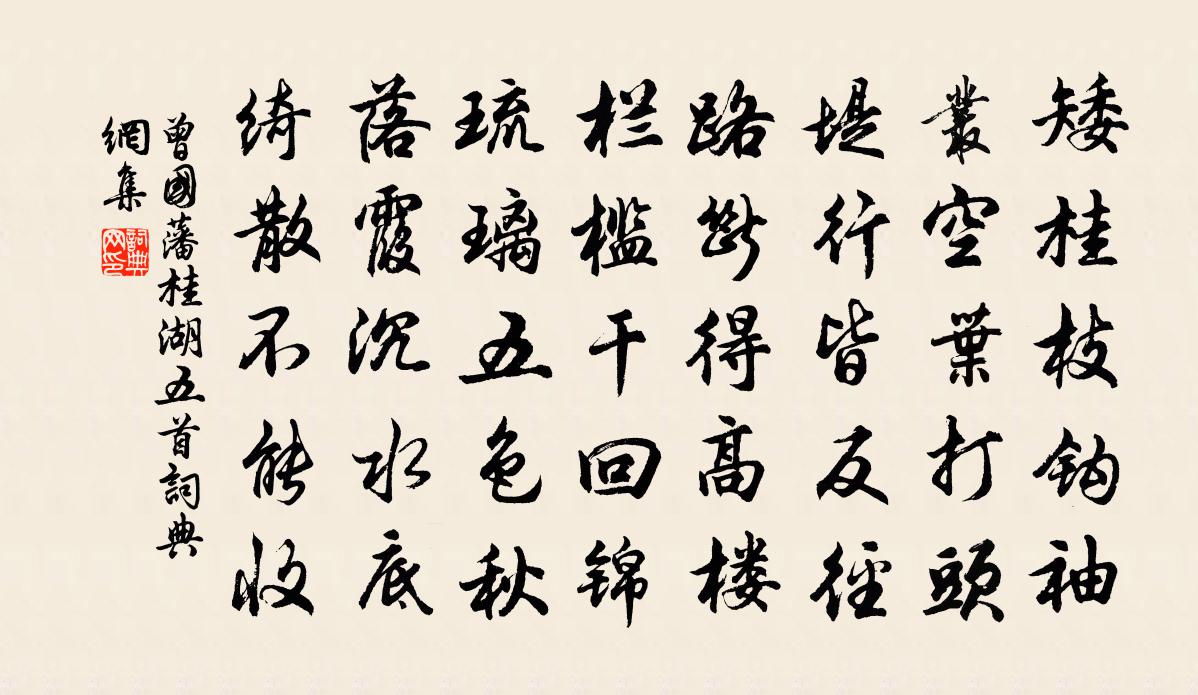 矮桂枝钩袖
叢空葉打頭
堤行皆反徑
路斷得高楼
栏槛干回锦
琉璃五色秋
落霞沉水底
绮散不能收
曾國藩桂湖五首詞典
網集
詞典
网印